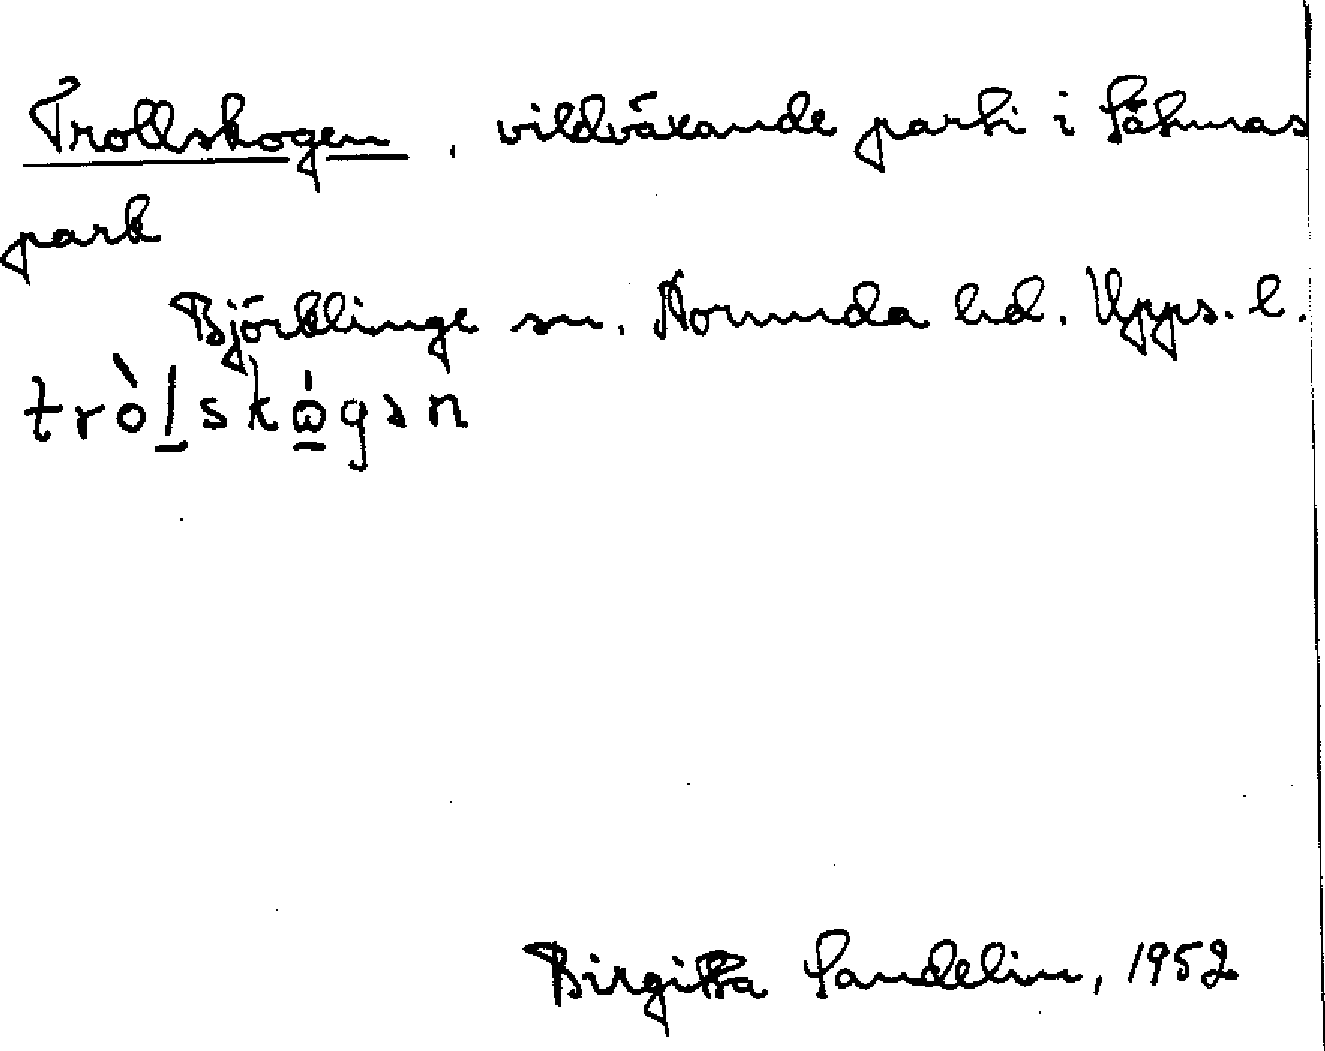 Trollskogen, vildväxande parti i Såhmas
park
Björklinge sn. Norunda hd. Upps. l.
tròlskȯgən
Birgitta Sandelin, 1952